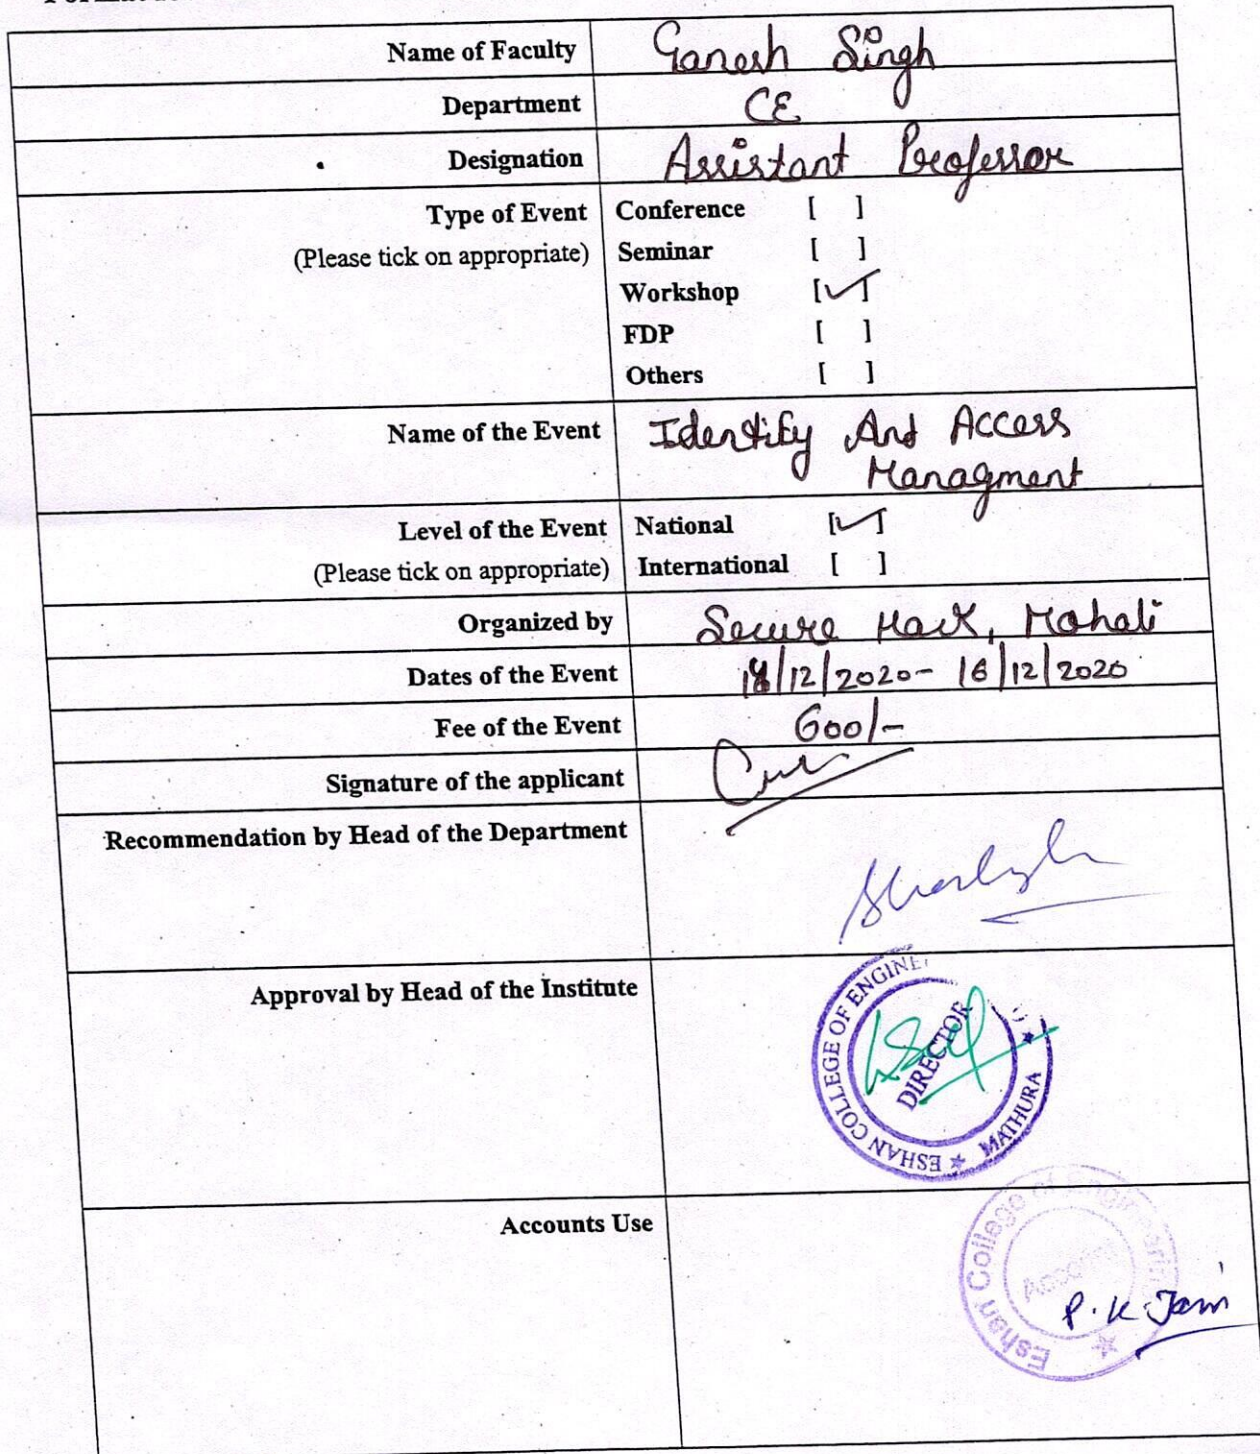 Name of Faculty Ganesh Singh
Department CE
Designation Assistant Professor
Type of Event Conference [ ]
(Please tick on appropriate) Seminar [ ]
Workshop [✓]
FDP [ ]
Others [ ]
Name of the Event Identify And Access
Managment
Level of the Event National [✓]
(Please tick on appropriate) International [ ]
Organized by Secure Hack, Mohali
Dates of the Event /12/2020- 16/12/2020
Fee of the Event 600/-
Signature of the applicant
Recommendation by Head of the Department
Approval by Head of the Institute
ESHAN COLLEGE OF ENGINE
MATHURA
DIRECTOR
Accounts Use
Eshan College of Engineering
Account
P.K Jain